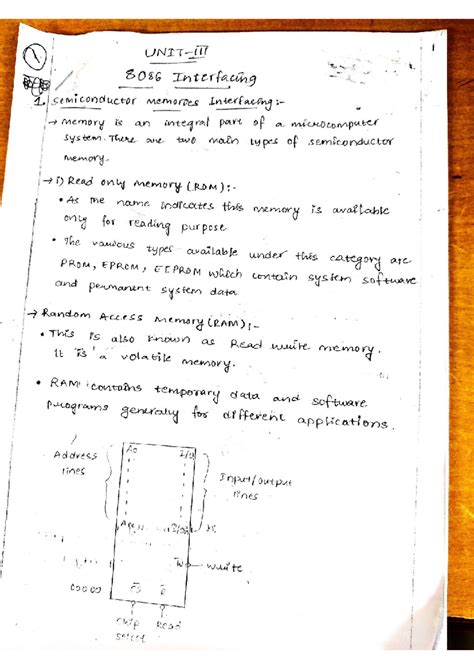 1
UNIT-III
1
8086 Interfacing
1. Semiconductor memories Interfacing:-
→ memory is an integral part of a microcomputer
system. There are two main types of semiconductor
memory.
→ i) Read only memory (ROM):-
• As the name indicates this memory is available
only for reading purpose
• The various types available under this category are
PROM, EPROM, EEPROM which contain system software
and permanent system data
→ Random Access memory (RAM):-
• This is also known as Read write memory.
It is a volatile memory.
• RAM contains temporary data and software
programs generaly for different applications.
Address
lines
A0
I/O
Input/output
lines
write
chip
select
Read